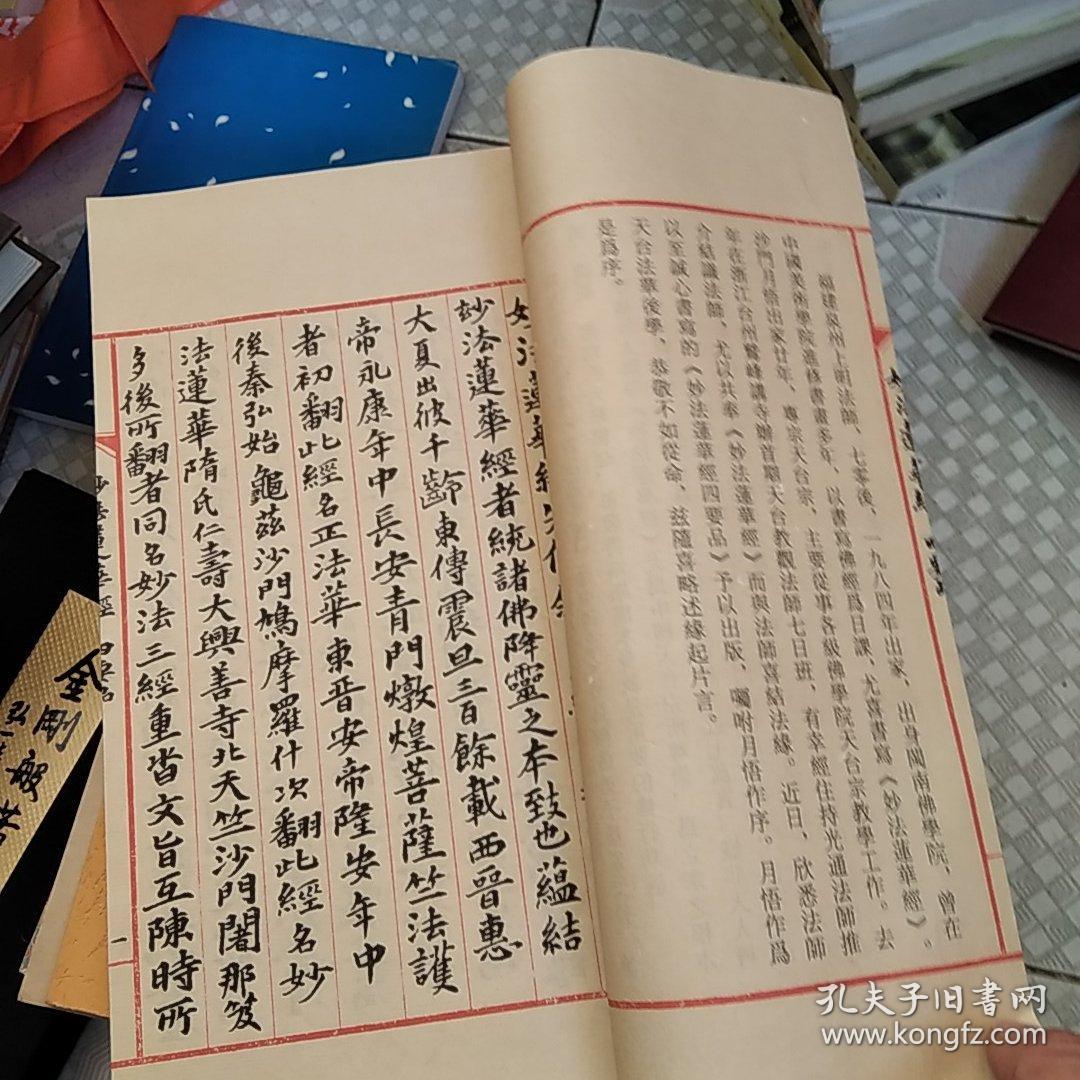 福建泉州上明法師、七零後、一九八四年出家、出身閩南佛學院、曾在
中國美術學院進修書畫多年、以書寫佛經爲日課、尤喜書寫《妙法蓮華經》。
沙門月悟出家廿年、專宗天台宗、主要從事各級佛學院天台宗教學工作。去
年在浙江台州鷲峰講寺辦首期天台教觀法師七日班、有幸經住持光通法師推
介結識法師、尤以共奉《妙法蓮華經》而與法師喜結法緣。近日、欣悉法師
以至誠心書寫的《妙法蓮華經四要品》予以出版、囑咐月悟作序。月悟作爲
天台法華後學、恭敬不如從命、茲隨喜略述緣起片言。
是爲序。
妙法蓮華經
妙法蓮華經者統諸佛降靈之本致也蘊結
大夏出彼千齡東傳震旦三百餘載西晉惠
帝永康年中長安青門燉煌菩薩竺法護
者初翻此經名正法華東晉安帝隆安年中
後秦弘始龜茲沙門鳩摩羅什次翻此經名妙
法蓮華隋氏仁壽大興善寺北天竺沙門闍那笈
多後所翻者同名妙法三經重沓文旨互陳時所
妙法蓮華經 四要品
一
金剛
孔夫子旧书网
www.kongfz.com